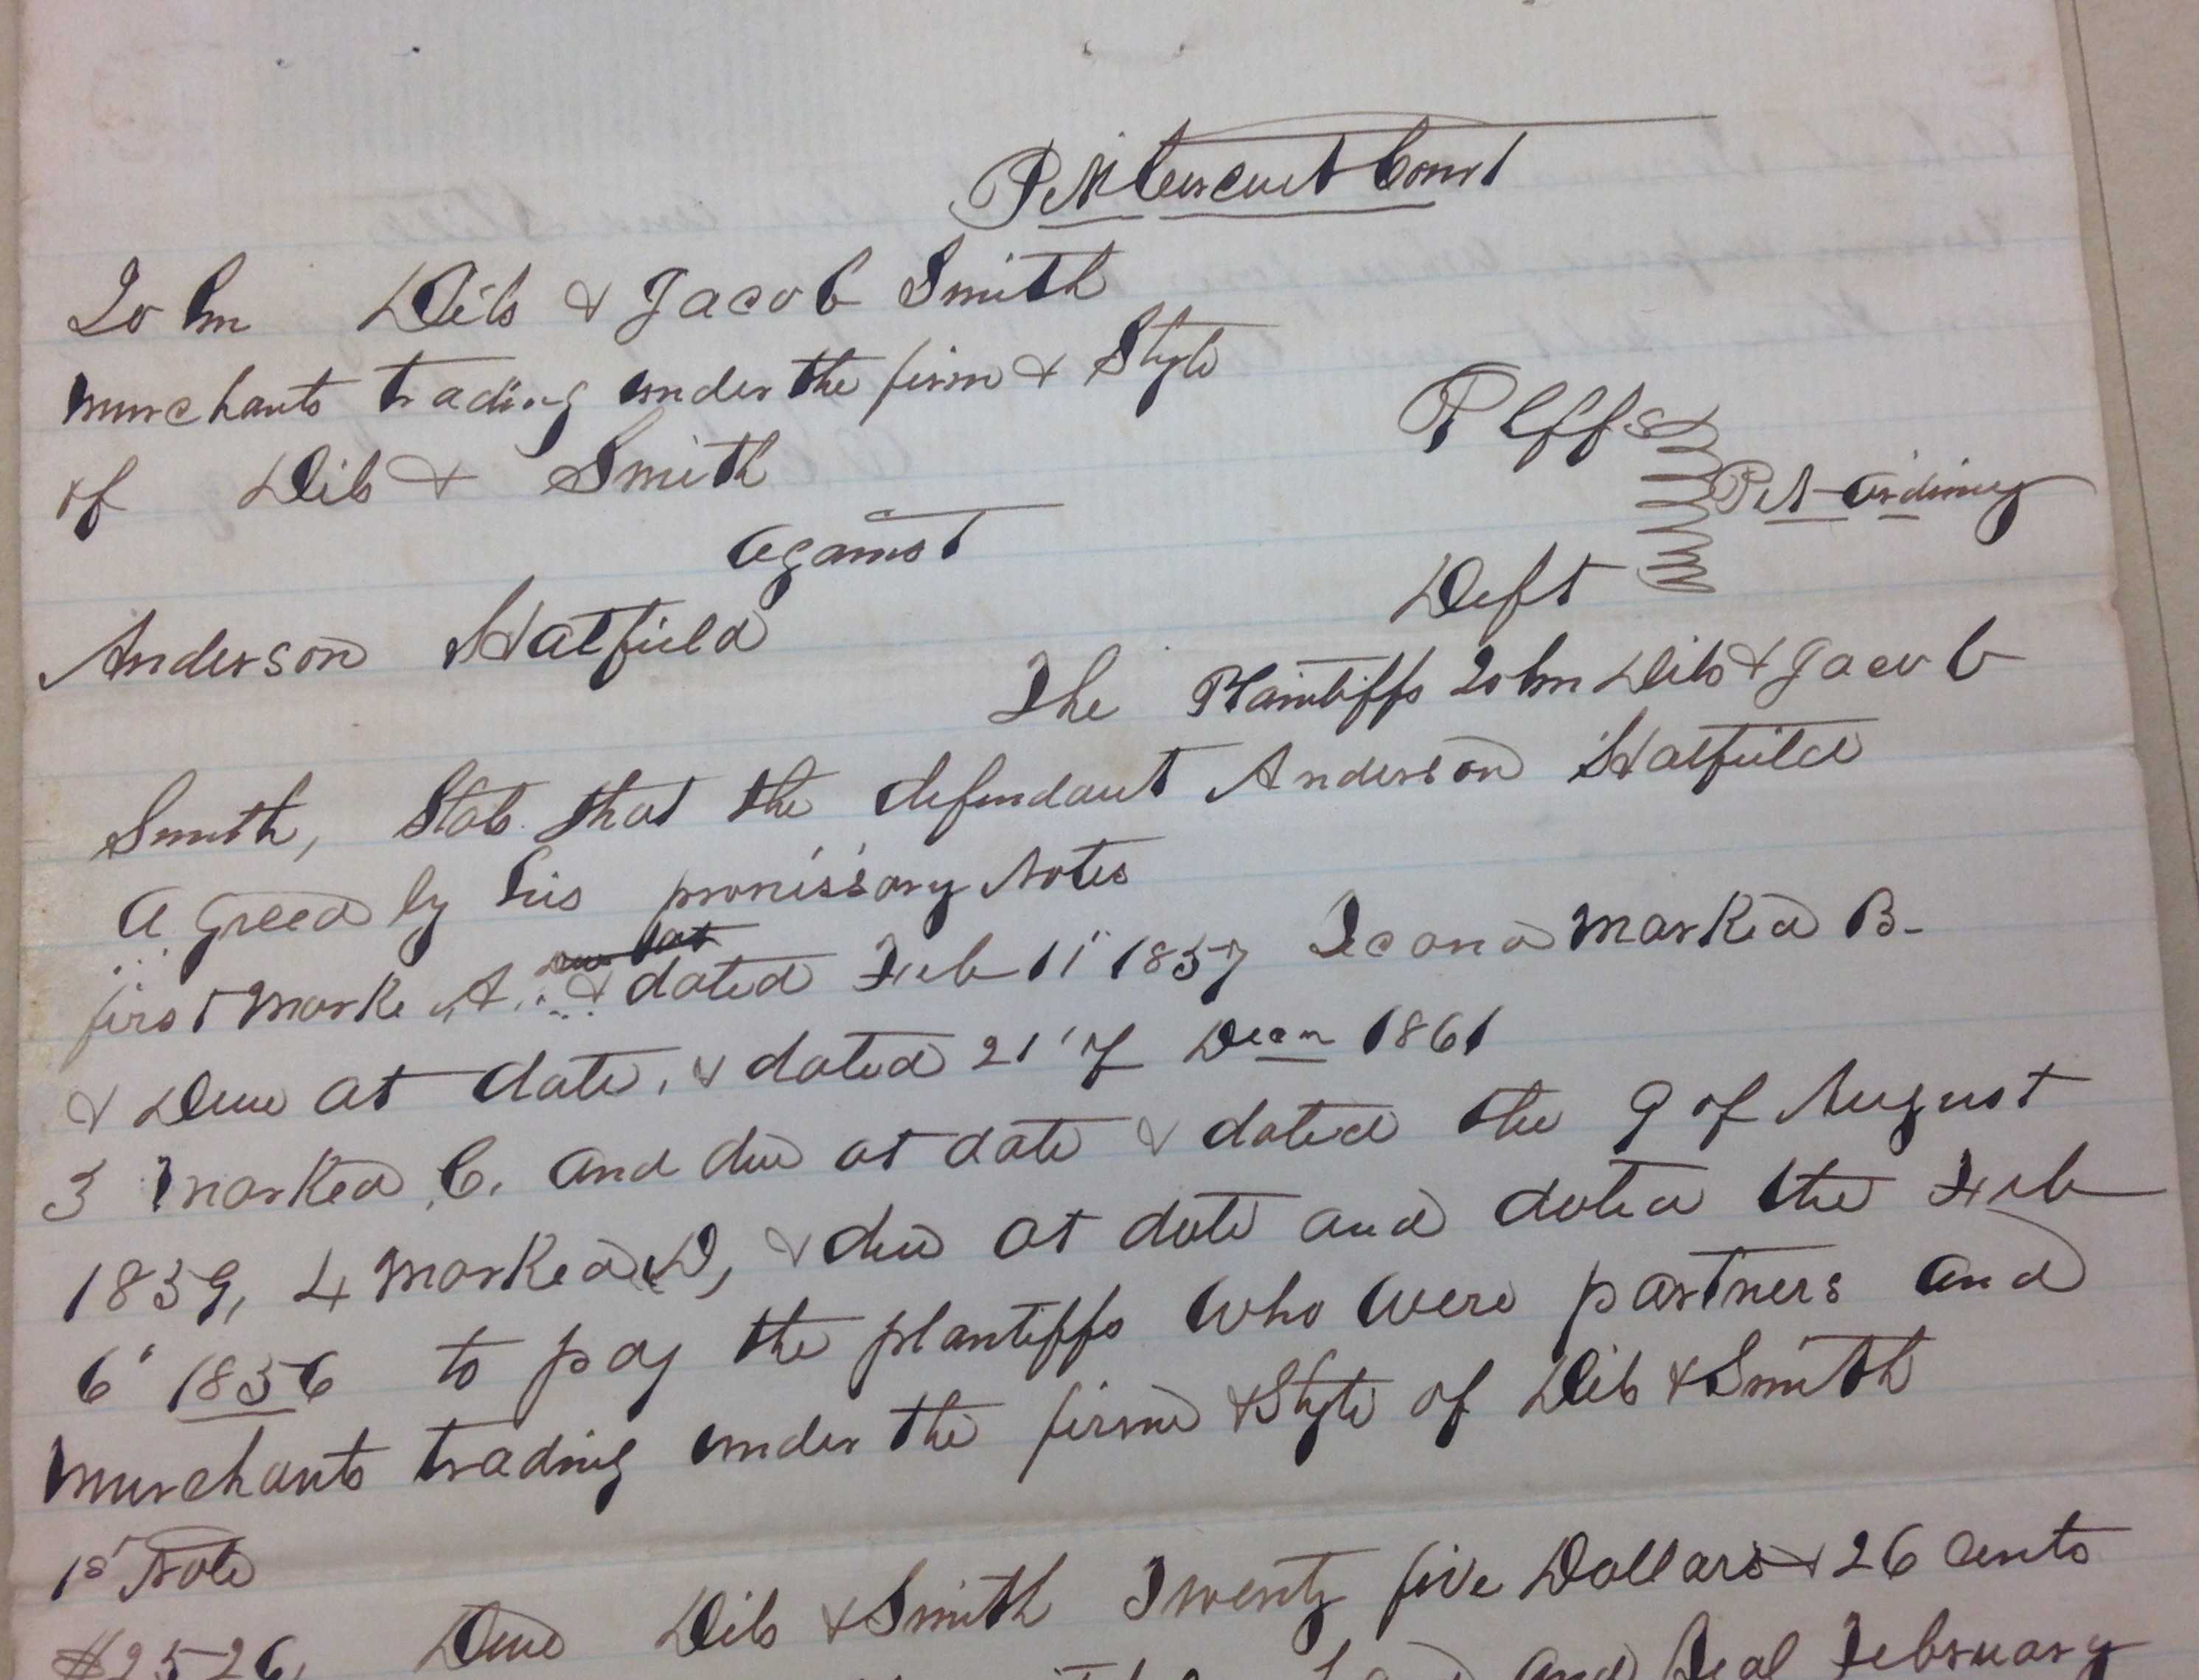 Pike Circuit Court
John Dils & Jacob Smith
merchants trading under the firm & Style
of Dils & Smith Plffs
Pet Ordinary
against
Deft
Anderson Hatfield
The Plaintiffs John Dils & Jacob
Smith, State that the defendant Anderson Hatfield
agreed by his promissory Notes
first Marke A. & dated Feb 11" 1857 Second Marked B-
& Due at date, & dated 21' of Decm 1861
3 Marked C. and due at date & dated the 9 of August
1859, 4 Marked D, & due at date and dated the Feb
6' 1856 to pay the plantiffs who were partners and
Merchants trading under the firme & Style of Dils & Smith
1st Note
$25-26, Due Dils & Smith Twenty five Dollars & 26 cents
and Seal February